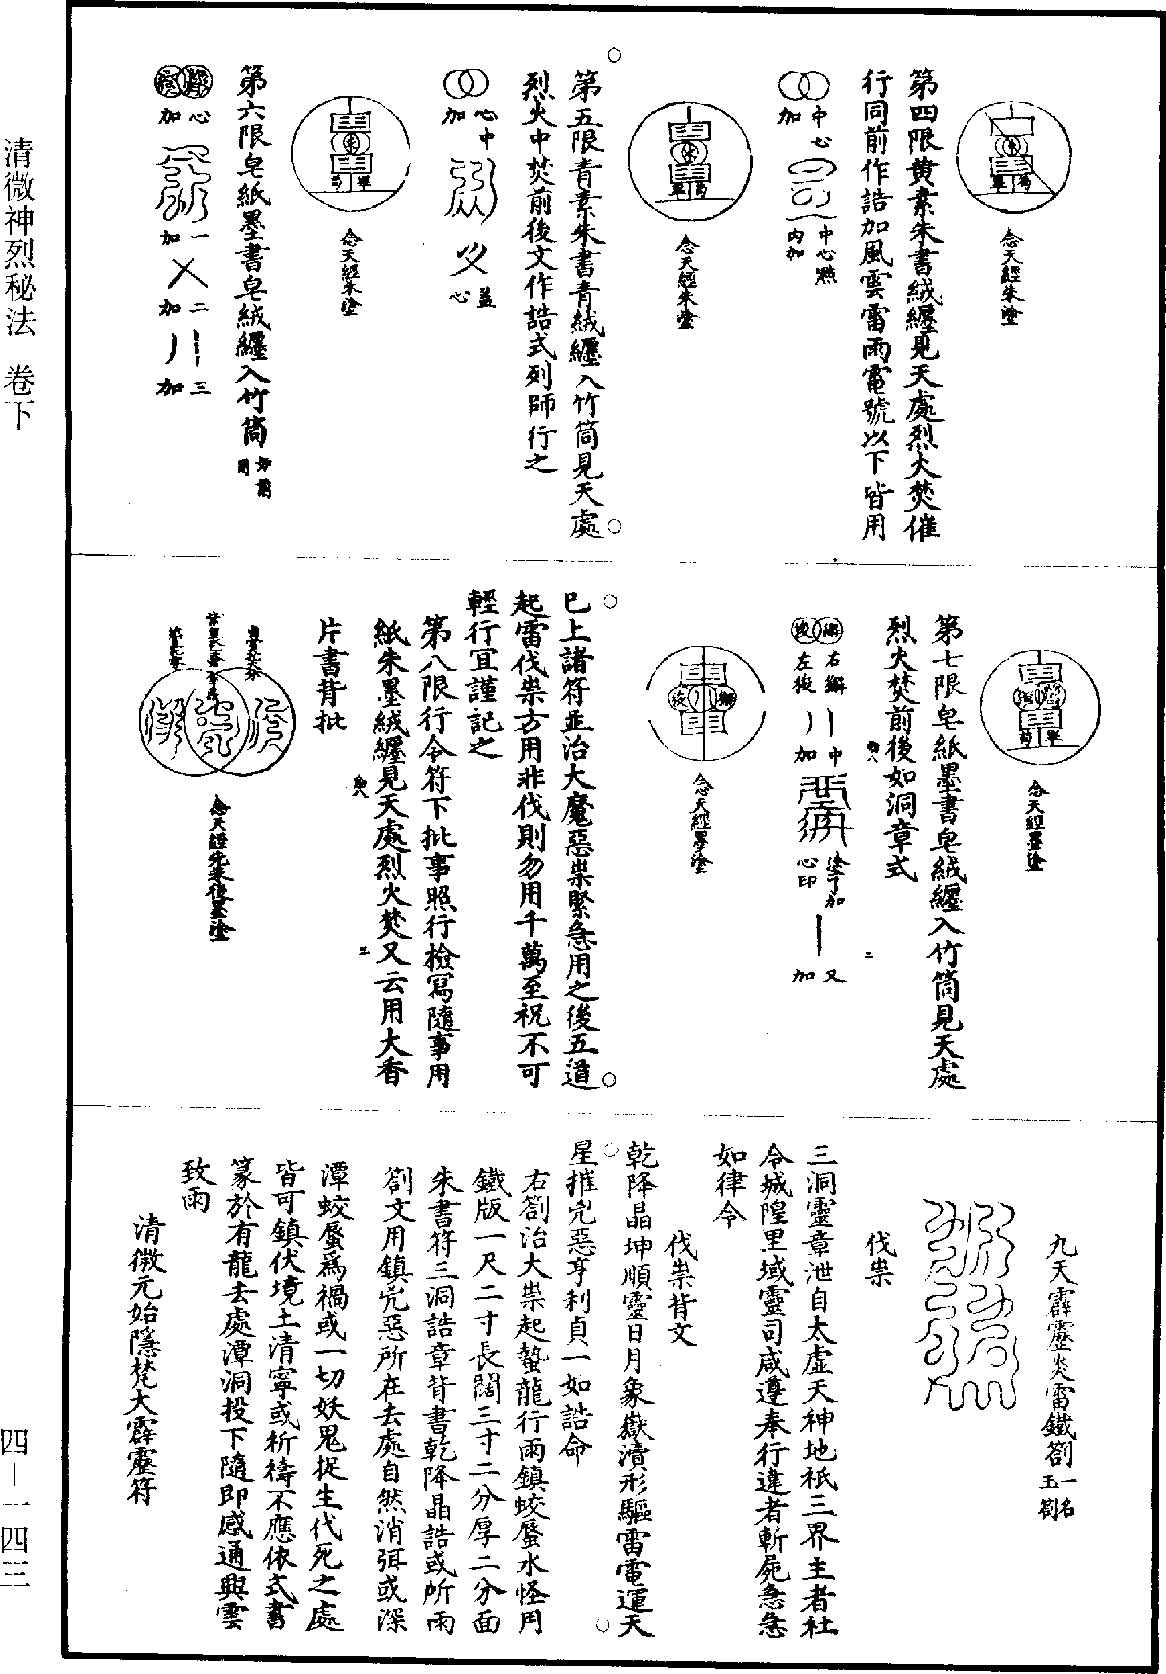 念天經朱塗
第四限黃素朱書絨纏見天處烈火焚催
行同前作誥加風雲雷雨電號以下皆用
中心
加
中心點
內加
念天經朱塗
第五限青素朱書青絨纏入竹筒見天處
烈火中焚前後文作誥式列師行之
心中
加
蓋
心
念天經朱塗
第六限皂紙墨書皂絨纏入竹筒
心
加
一
加
二
加
三
加
念天經墨塗
第七限皂紙墨書皂絨纏入竹筒見天處
烈火焚前後如洞章式
右
左
中
加
塗下加
心印
又
加
念天經墨塗
巳上諸符並治大魔惡祟緊急用之後五道
起雷伐祟方用非伐則勿用千萬至祝不可
輕行宜謹記之
第八限行令符下批事照行檢寫隨事用
紙朱墨絨纏見天處烈火焚又云用大香
片書背批
念天經先朱後墨塗
九天霹靂炎雷鐵劄一名玉劄
伐祟
三洞靈章泄自太虛天神地祇三界主者社
令城隍里域靈司咸遵奉行違者斬屍急急
如律令
伐祟背文
乾降晶坤順靈日月象嶽瀆形驅雷電運天
星摧兇惡亨利貞一如誥命
右劄治大祟起蟄龍行雨鎮蛟蜃水怪用
鐵版一尺二寸長闊三寸二分厚二分面
朱書符三洞誥章背書乾降晶誥或所雨
劄文用鎮兇惡所在去處自然消弭或深
潭蛟蜃為禍或一切妖鬼捉生代死之處
皆可鎮伏境土清寧或祈禱不應依式書
篆於有龍去處潭洞投下隨即感通興雲
致雨
清微元始隱梵大霹靂符
清微神烈秘法 卷下
四—一四三